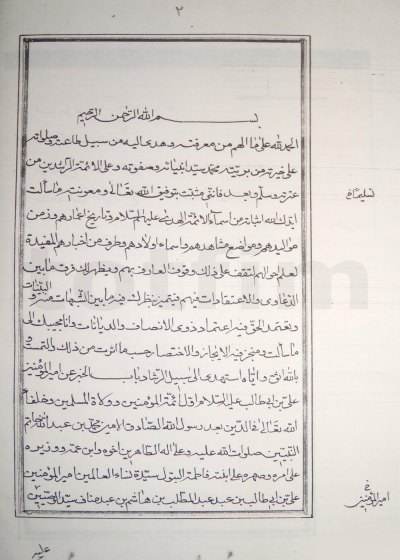 ٢
بسم الله الرحمن الرحيم
الحمد لله على ما الهم من معرفته و هدى اليه من سبيل طاعته و صلواته
على خيرته من بريته محمد سيد انبيائه و صفوته و على الائمة الراشدين من
عترته و سلم و بعد فانني مثبت بتوفيق الله تعالى و معونته ما سألت
ايدك الله اثباته من اسماء الائمة الهدى عليهم السلام و تاريخ اعمارهم و زمن
مواليدهم و مواضع مشاهدهم و اسماء اولادهم و طرف من اخبارهم المفيدة
لعلم احوالهم لتقف على ذلك وقوف العارف بهم و يظهر لك فرق ما بين
الدعاوى و الاعتقادات فيهم فتميز بنظرك فيه ما بين الشبهات منه و
البينات
و تعتمد الحق فيه اعتماد ذوى الانصاف و الديانات و انا مجيبك الى
ما سألت و متجز فيه الايجاز و الاختصار حسب ما اثرت من ذلك و التمست و
بالله اثق و اياه استهدى الى سبيل الرشاد باب الخبر عن امير المؤمنين
على بن ابى طالب عليه السلام اول ائمة المؤمنين و ولاة المسلمين و خلفاء
الله تعالى فى الدين بعد رسول الله الصادق الامير محمد بن عبد الله خاتم
النبيين صلوات الله عليه و على اله الطاهرين اخوه و ابن عمه و وزيره
على امره و صهره على ابنته فاطمة البتول سيدة نساء العالمين امير المؤمنين
على بن ابى طالب بن عبد المطلب بن هاشم بن عبد مناف سيد الوصيين
امير المؤمنين
عليه